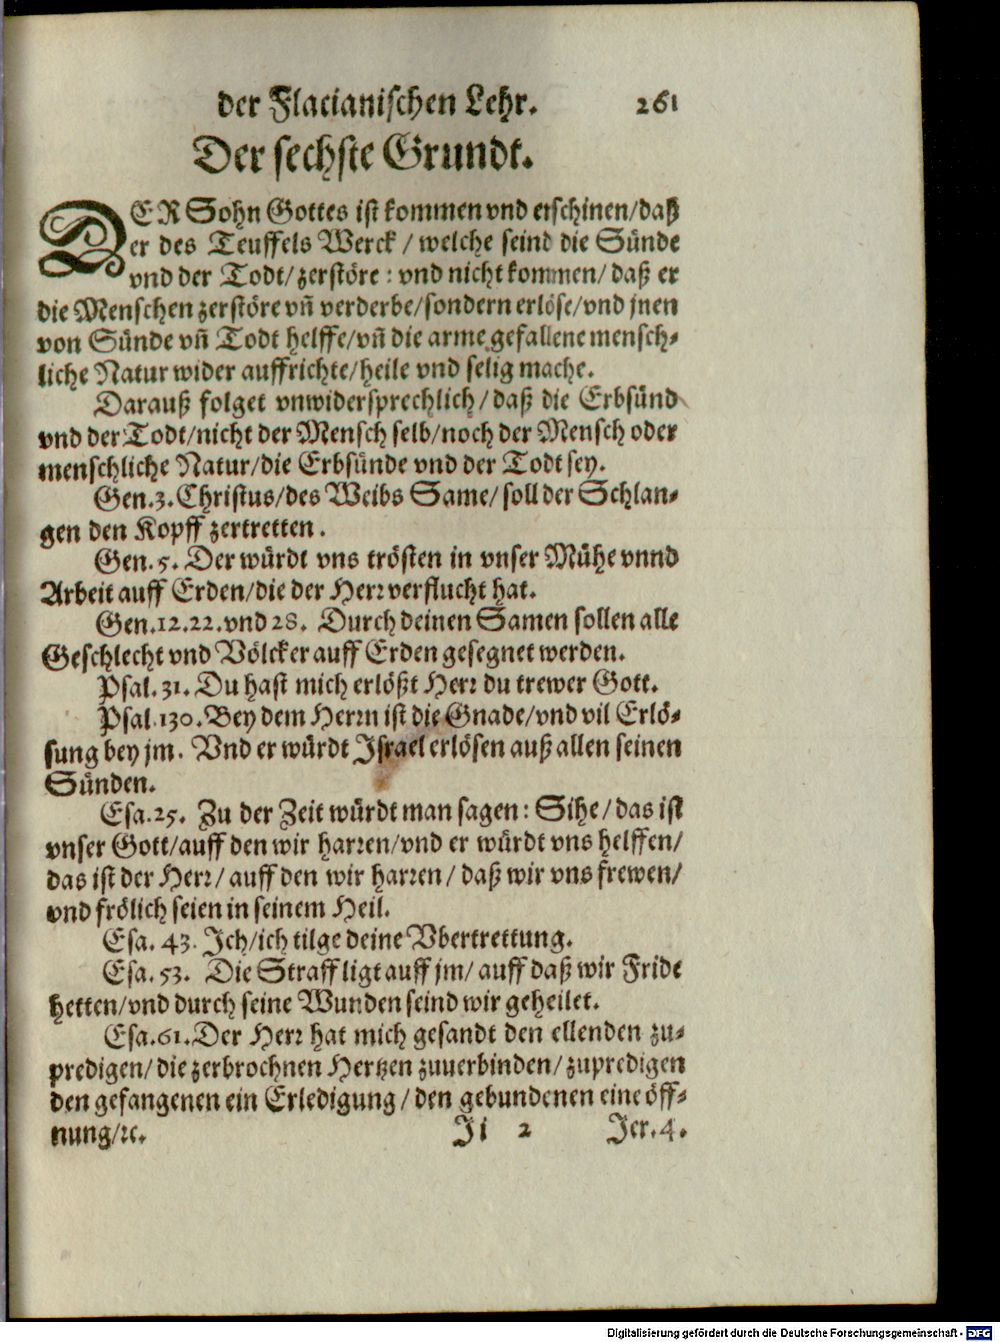 der Flacianischen Lehr. 261
Der sechste Grundt.
DER Sohn Gottes ist kommen vnd erschinen/daß
er des Teuffels Werck / welche seind die Sünde
vnd der Todt/zerstöre: vnd nicht kommen/ daß er
die Menschen zerstöre vñ verderbe/sondern erlöse/vnd jnen
von Sünde vñ Todt helffe/vñ die arme gefallene mensch-
liche Natur wider auffrichte/heile vnd selig mache.
Darauß folget vnwidersprechlich/daß die Erbsünd
vnd der Todt/nicht der Mensch selb/noch der Mensch oder
menschliche Natur/die Erbsünde vnd der Todt sey.
Gen.3. Christus/des Weibs Same/ soll der Schlan-
gen den Kopff zertretten.
Gen.5. Der würdt vns trösten in vnser Mühe vnnd
Arbeit auff Erden/die der Herr verflucht hat.
Gen.12.22.vnd 28. Durch deinen Samen sollen alle
Geschlecht vnd Völcker auff Erden gesegnet werden.
Psal.31. Du hast mich erlößt Herr du trewer Gott.
Psal.130. Bey dem Herrn ist die Gnade/vnd vil Erlö-
sung bey jm. Vnd er würdt Israel erlösen auß allen seinen
Sünden.
Esa.25. Zu der Zeit würdt man sagen: Sihe/das ist
vnser Gott/auff den wir harren/vnd er würdt vns helffen/
das ist der Herr/ auff den wir harren/ daß wir vns frewen/
vnd frölich seien in seinem Heil.
Esa. 43. Ich/ich tilge deine Vbertrettung.
Esa. 53. Die Straff ligt auff jm/ auff daß wir Fride
hetten/vnd durch seine Wunden seind wir geheilet.
Esa.61.Der Herr hat mich gesandt den ellenden zu-
predigen/die zerbrochnen Hertzen zuuerbinden/zupredigen
den gefangenen ein Erledigung/den gebundenen eine öff-
nung/ꝛc. Ii 2 Jer.4.
Digitalisierung gefördert durch die Deutsche Forschungsgemeinschaft - DFG